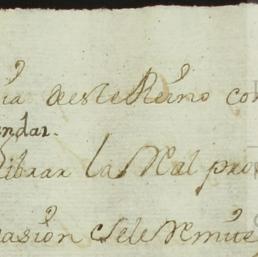 ia deste Reino con
endar.
librar la Real pro
asión se le remite